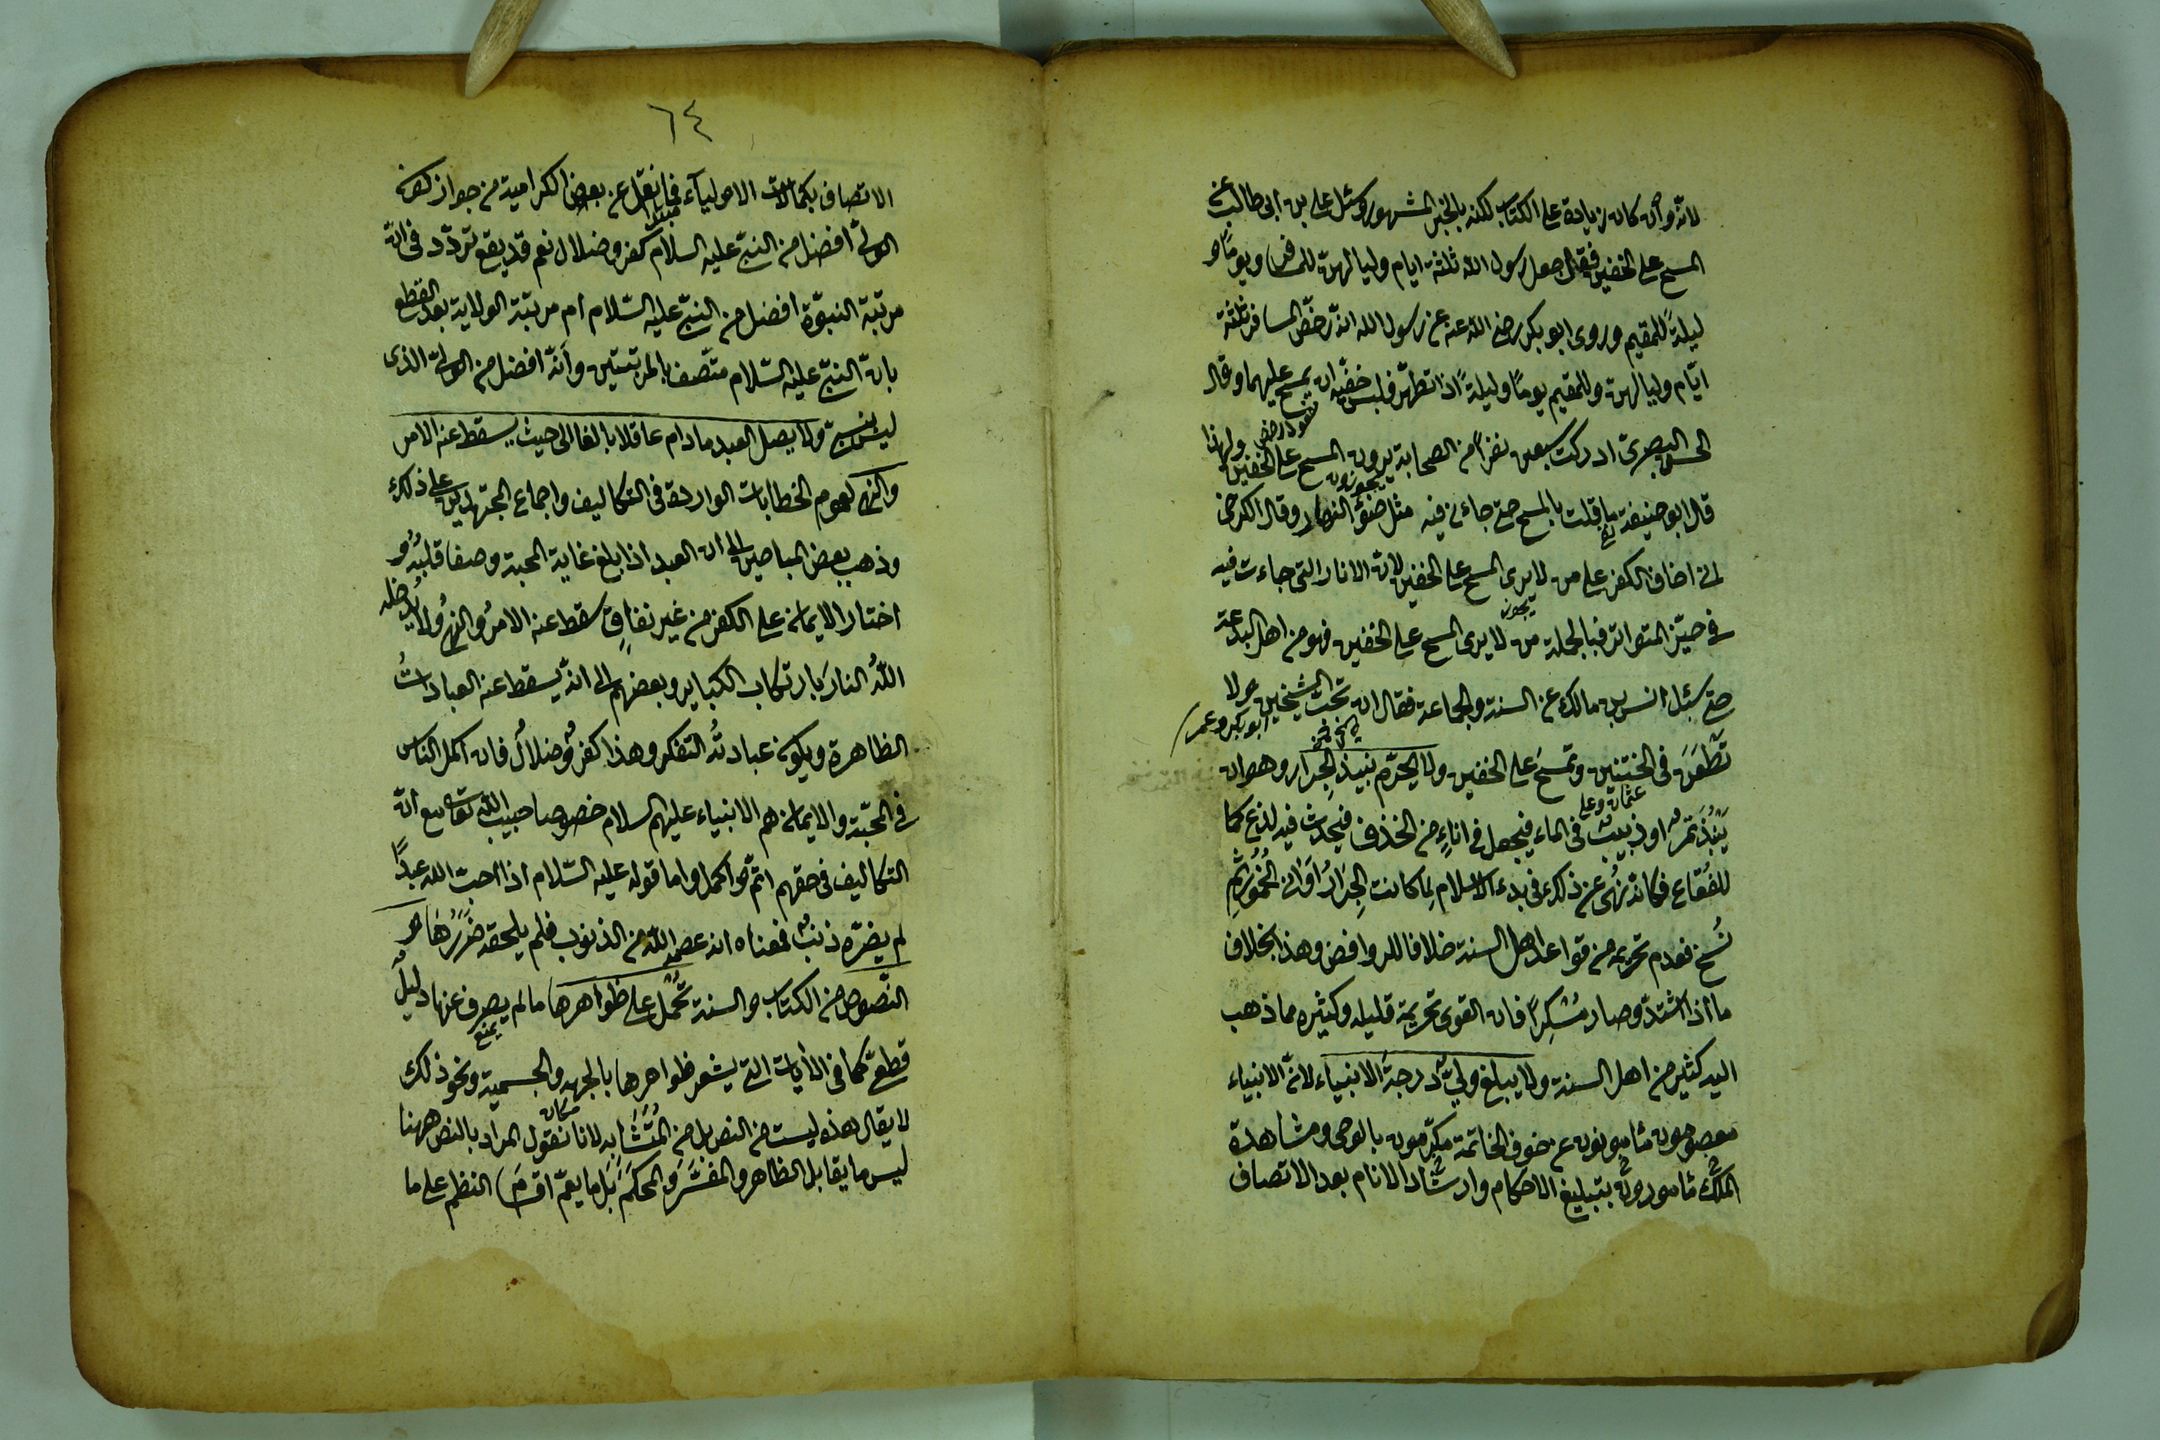 لانه وان كان زيادة على الكتاب لكنه بالخبر المشهور وسئل على بن ابى طالب عن
المسح على الخفين فقال جعل رسول الله ثلثة ايام ولياليهن للمسافر ويومًا و
ليلةً للمقيم وروى ابو بكر رضى الله عنه عن رسول الله انه رخّص للمسافر ثلثة
ايّام ولياليهن وللمقيم يومًا وليلةً اذا تطهّر فلبس خفّيه ان يمسح عليهما وقال
الحسن البصرىّ ادركت سبعين نفرًا من الصحابة يرون المسح على الخفين ولهذا
يجوزون
قال ابو حنيفة ما قلت بالمسح حتى جاءنى فيه مثل ضوء النهار وقال الكرخى
انى اخاف الكفر على من لا يرى المسح على الخفين لان الاثار التى جاءت فيه
فى حيّز المتواتر فبالجملة من لا يرى المسح على الخفين فهو من اهل البدعة
يجوز
حتى سُئل انس بن مالك عن السنة والجماعة فقال ان تحب الشيخين ولا
ابو بكر وعمر
تَطْعَنَ فى الختنين وتمسحَ على الخفين ولا يحرّم نبيذ الجِرار وهو ان
عثمان وعلى
يُنْبَذَ تمرٌ او زبيبٌ فى الماء فيجعل فى اناءٍ من الخذف فيحدث فيه لذع كما
للفُقّاع فكانه نُهى عن ذلك فى بدء الاسلام لِما كانت الجِرَارُ اَوَانى الخُمُورِ ثم
نُسخ فعدم تحريمه من قواعد اهل السنة خلافا للروافض وهذا بخلاف
ما اذا اشتدّ وصار مُسْكِرًا فان القول بتحريمة قليله وكثيره مما ذهب
اليه كثير من اهل السنة ولا يبلغ ولىٌّ درجةَ الانبياء لان الانبياء
معصومون مأمونون عن خوف الخاتمة مكرّمون بالوحى ومشاهدة
الملك مأمورون بتبليغ الاحكام وارشاد الانام بعد الاتصاف
٦٤
الاتصاف بكمالات الاولياء فما نقل عن بعض الكرامية من جواز كون
الولىّ افضل من النبىّ عليه السلام كفر وضلال نعم قد يقع تردّد فى انّ
مرتبة النبوّة افضل من النبىّ عليه السّلام ام مرتبة الولاية بعد القطع
بان النبىّ عليه السّلام متّصف بالمرتبتين وانّه افضل من الولىّ الذى
ليس بنبىّ ولا يصل العبد ما دام عاقلا بالغا الى حيث يسقط عنه الامر
والنهى لعموم الخطابات الواردة فى التكاليف واجماع المجتهدين على ذلك
وذهب بعض المباحيين الى ان العبد اذا بلغ غاية المحبة وصفا قلبُه و
اختار الايمان على الكفر من غير نفاقٍ سقط عنه الامرُ والنهىُ ولا يُدخله
اللّهُ النارَ بارتكاب الكبائر وبعضهم الى انّه يسقط عنه العباداتُ
الظاهرة ويكون عبادتُه التفكر وهذا كفرٌ وضلالٌ فان اكمل الناس
فى المحبّة والايمان هم الانبياء عليهم السلام خصوصا حبيب اللّه تعالى مع انّ
التكاليف فى حقهم اتمّ واكمل واما قوله عليه السّلام اذا احب الله عبدًا
لم يضرّه ذنبٌ فمعناه انه عصمه اللّه من الذنوب فلم يلحقه ضَرَرُهَا و
النصوص من الكتاب والسنة تُحْمَلُ على ظواهرها ما لم يصرف عنها دليلٌ
قطعىّ كما فى الأيات التى يشعر ظواهرها بالجهة والجسمية ونحو ذلك
مكان
لا يقال هذه ليست من النص بل من المُتَشَابه لانا نقول المراد بالنص ههنا
ليس ما يقابل الظاهر والمفسَّرَ والمحكمَ بَل ما يعمّ اقسام النظم على ما